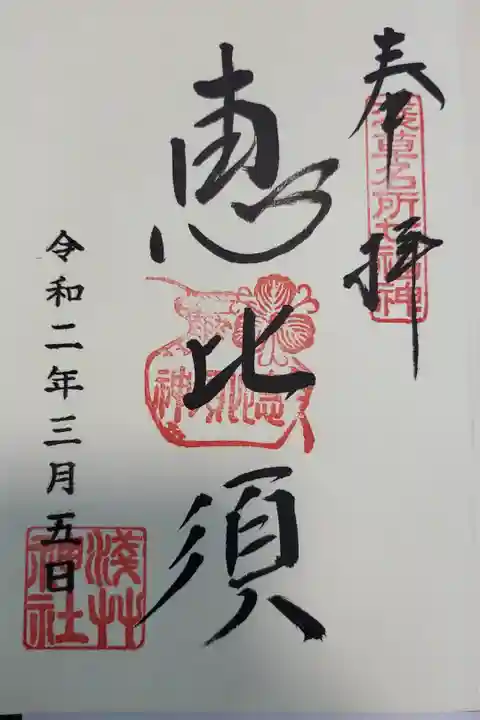 奉拝
浅草名所七福神
恵比須
令和二年三月五日
淺艸神社